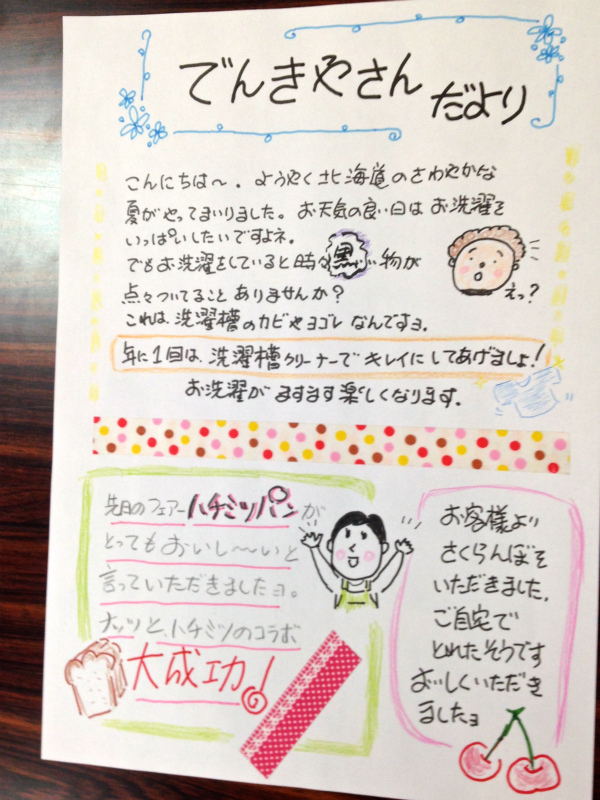 でんきやさん
だより
こんにちは〜。ようやく北海道のさわやかな
夏がやってまいりました。お天気の良い日はお洗濯を
いっぱいしたいですよネ。
でもお洗濯をしていると時々黒い物が
点々ついてることありませんか?
えっ?
これは、洗濯槽のカビやヨゴレなんですョ。
年に1回は、洗濯槽クリーナーでキレイにしてあげましょ!
お洗濯がますます楽しくなります。
先日のフェアーハチミツパンが
とってもおいし〜〜いと
言っていただきましたョ。
ナッツと、ハチミツのコラボ
大成功!
お客様より
さくらんぼを
いただきました。
ご自宅で
とれたそうです
おいしくいただき
ましたョ